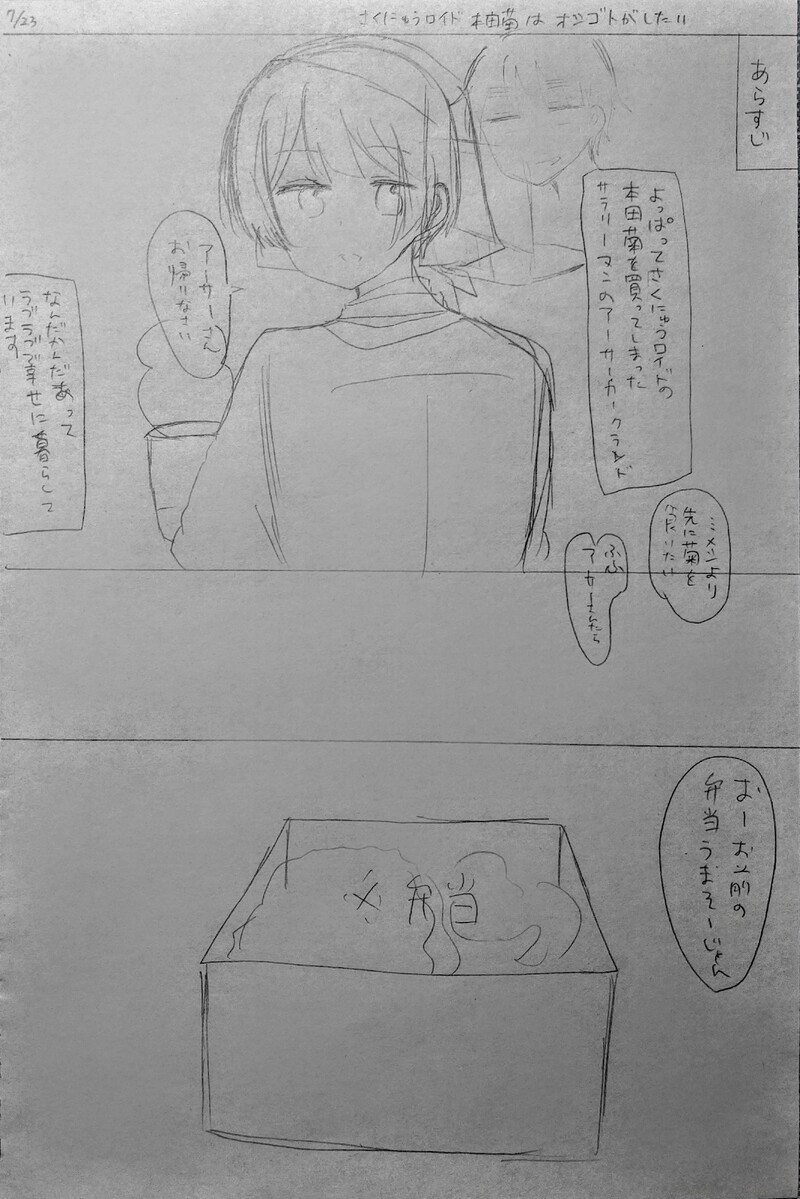 7/23
さくにゅうロイド 本田菊は オシゴトがしたい
あらすじ
よっぱってさくにゅうロイドの
本田菊を買ってしまった
サラリーマンのアーサーカークランド
アーサーさん
お帰りなさい
なんだかんだあって
ラブラブで幸せに暮らして
います
ミメシより
先に菊を
ふふ
アーサーさんたら
おーお前の
弁当うまそーじゃん
弁当